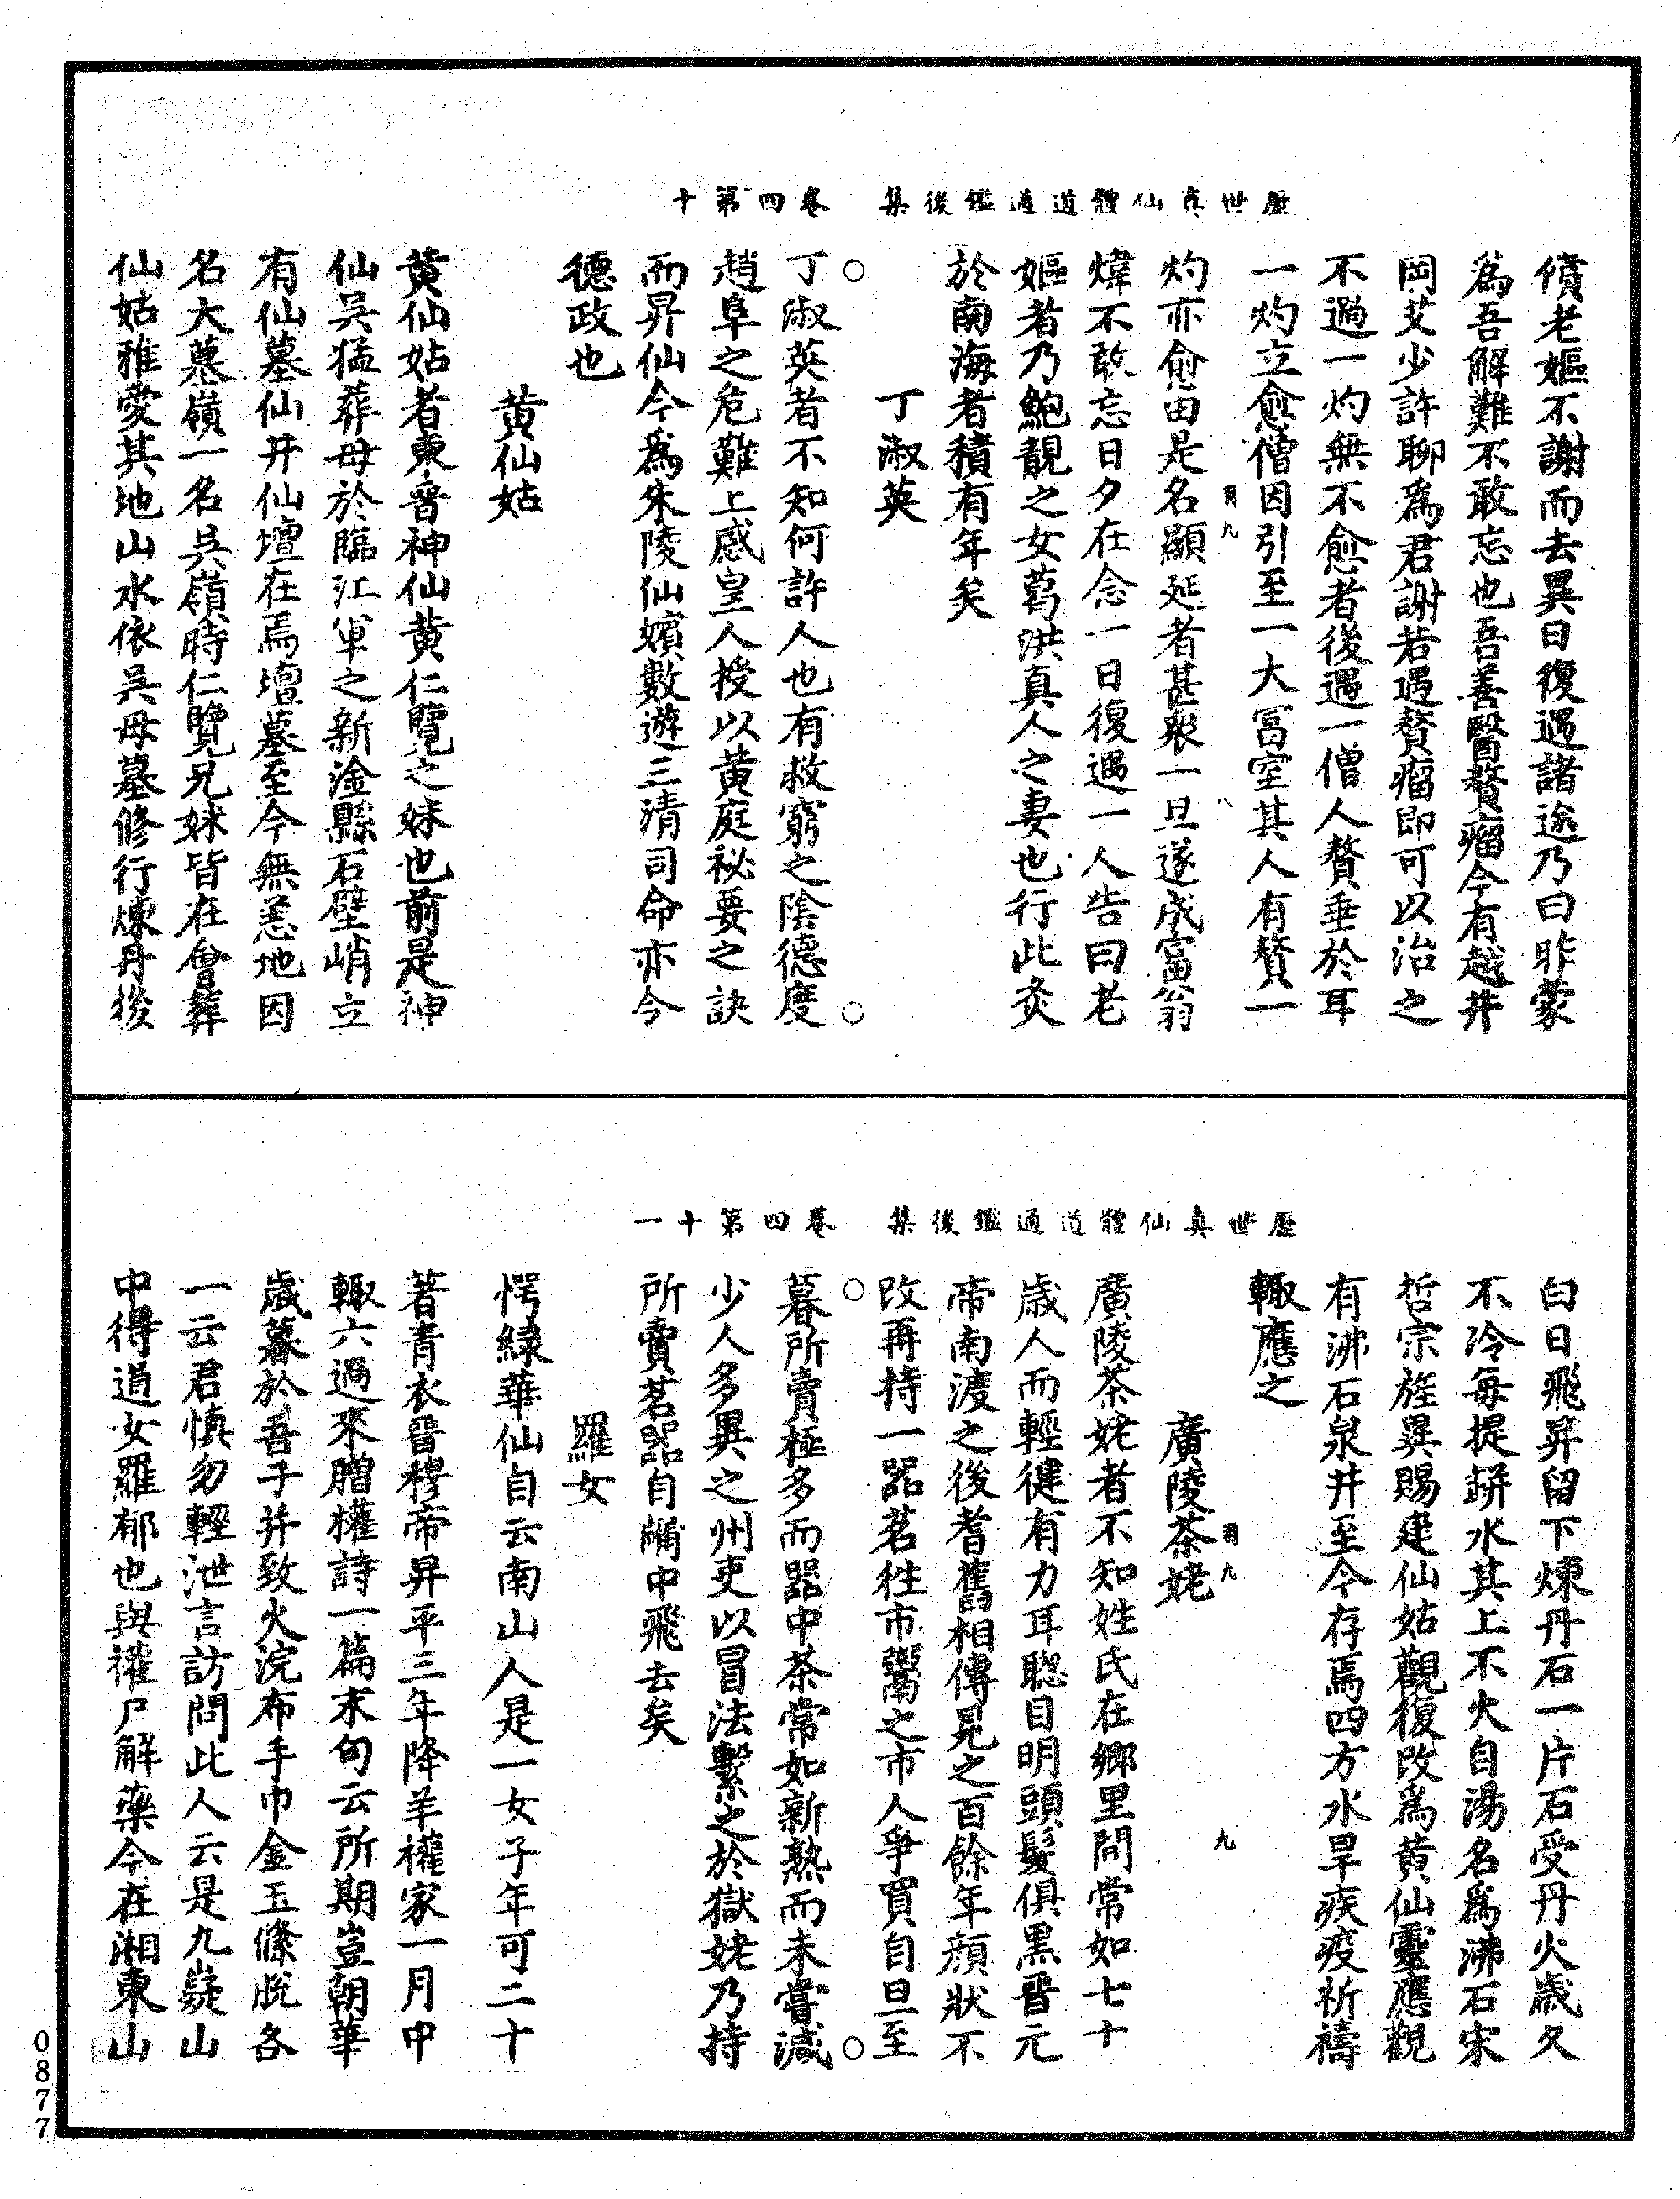 歷世真仙體道通鑑後集　卷四第十
償老嫗不謝而去異日復遇諸途乃曰昨蒙
爲吾解難不敢忘也吾善醫贅瘤今有越井
岡艾少許聊爲君謝若遇贅瘤即可以治之
不過一灼無不愈者後遇一僧人贅垂於耳
一灼立愈僧因引至一大富室其人有贅一
羽九
灼亦愈由是名顯延者甚衆一旦遂成富翁
煒不敢忘日夕在念一日復遇一人告曰老
嫗者乃鮑靚之女葛洪真人之妻也行此灸
於南海者積有年矣
丁淑英
丁淑英者不知何許人也有救窮之陰德度
趙阜之危難上感皇人授以黃庭祕要之訣
而昇仙今爲朱陵仙嬪數遊三清司命亦令
德政也
黃仙姑
黃仙姑者東晉神仙黃仁覽之妹也前是神
仙吳猛葬母於臨江軍之新淦縣石壁峭立
有仙墓仙井仙壇在焉壇墓至今無恙地因
名大墓嶺一名吳嶺時仁覽兄妹皆在會葬
仙姑雅愛其地山水依吳母墓修行煉丹後
歷世真仙體道通鑑後集　卷四第十一
白日飛昇留下煉丹石一片石受丹火歲久
不冷每提缾水其上不火自湯名爲沸石宋
哲宗旌異賜建仙姑觀復改爲黃仙靈應觀
有沸石泉井至今存焉四方水旱疾疫祈禱
輙應之
羽九
九
廣陵茶姥
廣陵茶姥者不知姓氏在鄉里間常如七十
歲人而輕健有力耳聰目明頭髮俱黑晉元
帝南渡之後耆舊相傳見之百餘年顏狀不
改再持一器茗徃市鬻之市人爭買自旦至
暮所賣極多而器中茶常如新熟而未嘗減
少人多異之州吏以冒法繫之於獄姥乃持
所賣茗器自牗中飛去矣
羅女
愕綠華仙自云南山人是一女子年可二十
著青衣晉穆帝昇平三年降羊權家一月中
輙六過來贈權詩一篇末句云所期豈朝華
歲暮於吾子并致火浣布手巾金玉條脫各
一云君慎勿輕泄言訪問此人云是九嶷山
中得道女羅郁也與權尸解藥今在湘東山
0877